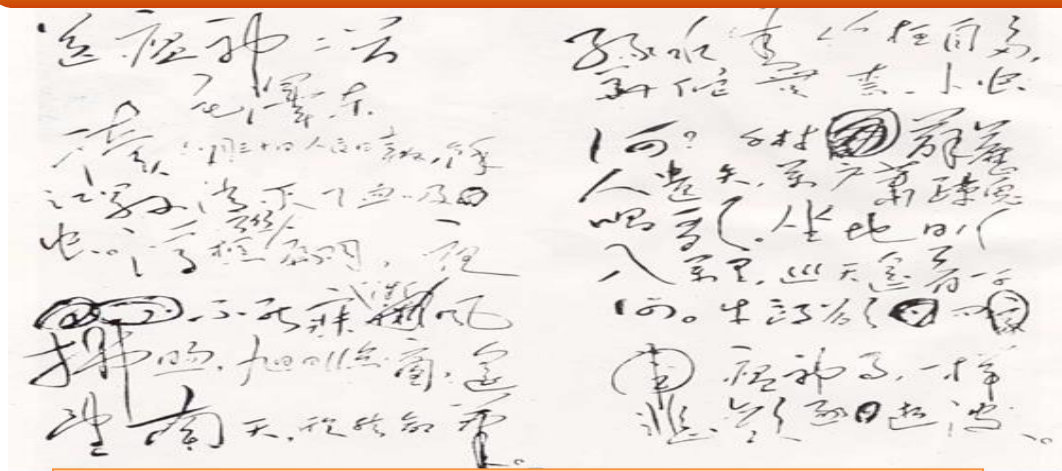 送瘟神二首
毛澤东
读六月三十日人民日报,余
江县消灭了血吸
虫。浮想联翩,夜
不能寐,微风
拂晓,旭日临窗,遥
望南天,欣然命笔。
绿水青山枉自多,
华佗无奈小虫
何?千村薜荔
人遗矢,萬户萧疏鬼
唱歌。坐地日行
八萬里,巡天遥看一千
河。牛郎欲问
瘟神事,一样
悲欢逐逝波。